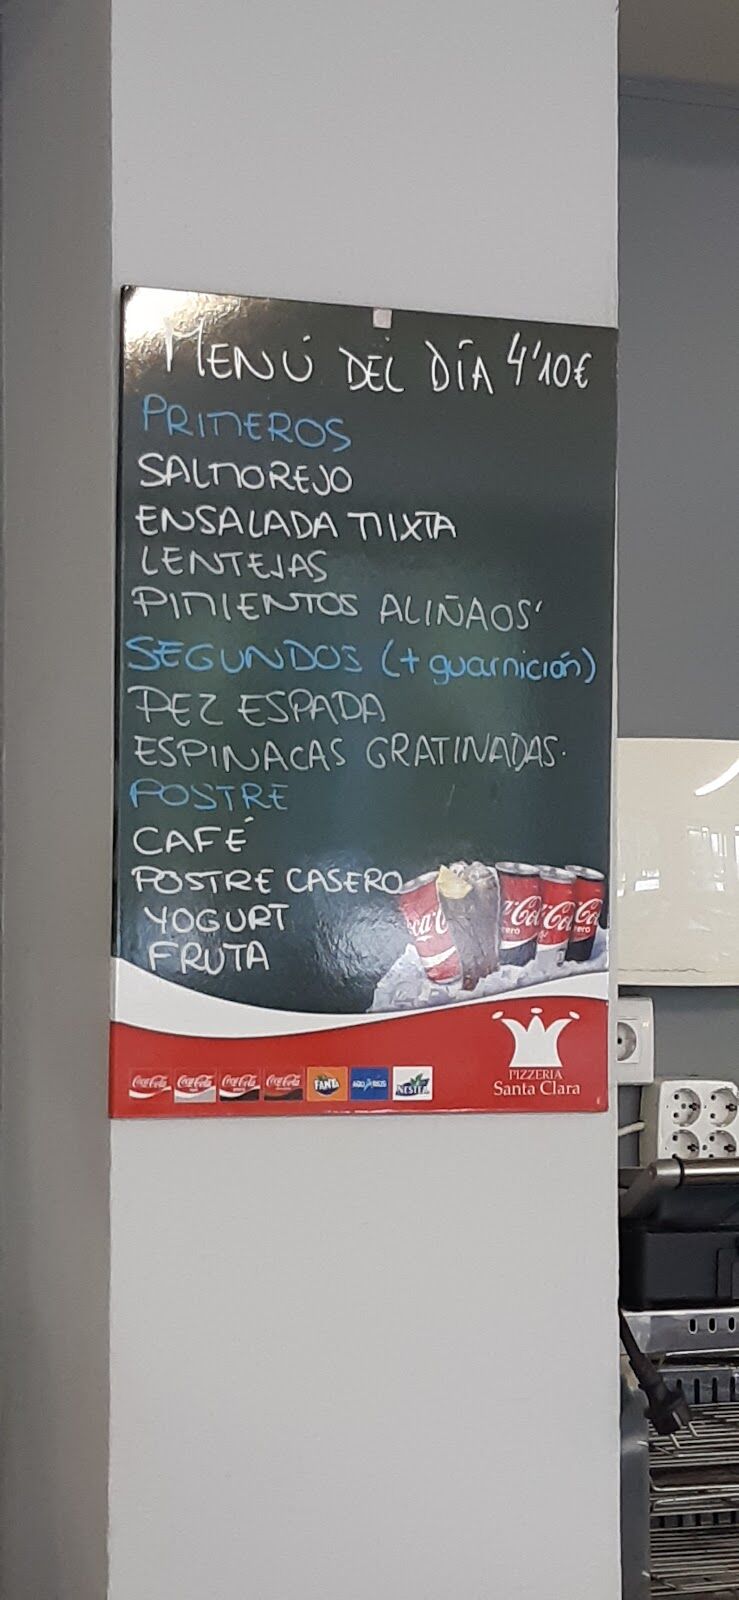 MENÚ DEL DÍA 4'10€
PRIMEROS
SALMOREJO
ENSALADA MIXTA
LENTEJAS
PIMIENTOS ALIÑAOS'
SEGUNDOS (+ guarnición)
PEZ ESPADA
ESPINACAS GRATINADAS.
POSTRE
CAFÉ
POSTRE CASERO
YOGURT
FRUTA
PIZZERIA
Santa Clara
Coca-Cola Coca-Cola Coca-Cola Coca-Cola FANTA AQUARIUS NESTEA